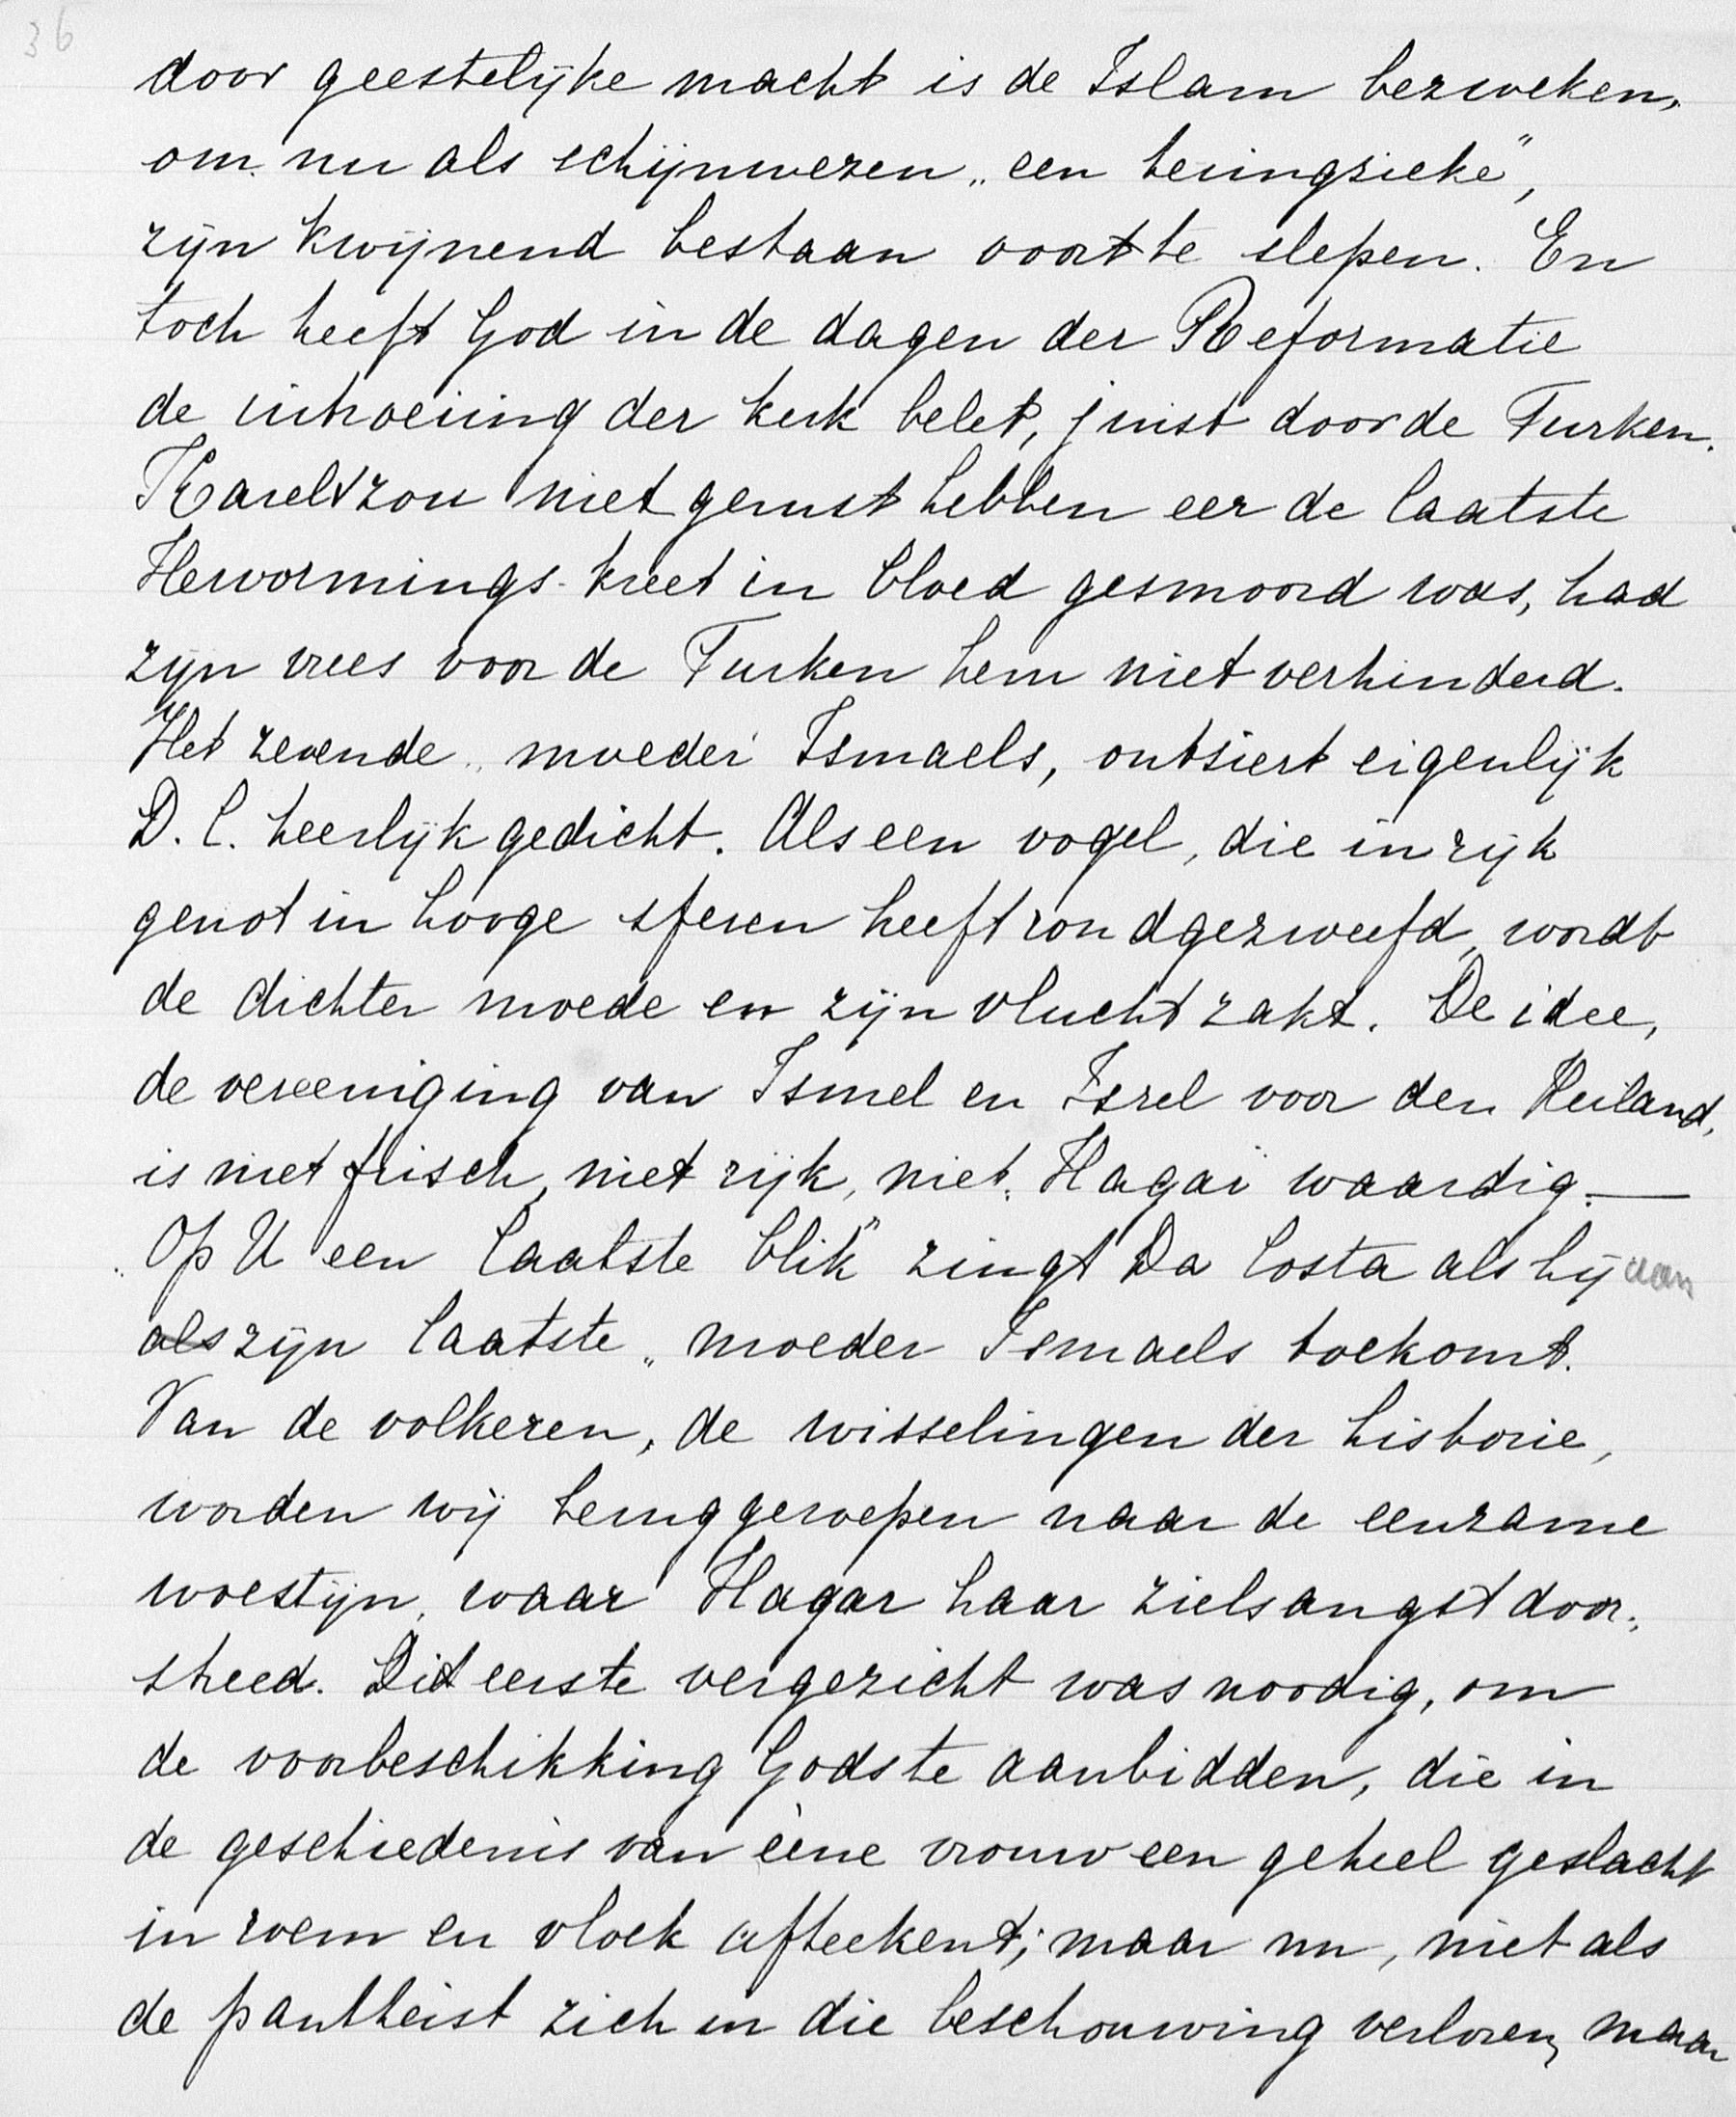 36
door geestelijke macht is de Islam bezweken,
om nu als schijnwezen „een teringzieke",
zijn kwijnend bestaan voort te slepen. En
toch heeft God in de dagen der Reformatie
de uitroeiing der kerk belet, juist door de Turken.
Karel V zou niet gerust hebben eer de laatste
Hervormings-kreet in bloed gesmoord was, had
zijn vrees voor de Turken hem niet verhinderd.
Het zevende „moeder Ismaels, ontsiert eigenlijk
D. C. heerlijk gedicht. Als een vogel, die in rijk
genot in hooge sferen heeft rondgezweefd, wordt
de dichter moede en zijn vlucht zakt. De idee,
de vereeniging van Ismel en Isrel voor den Heiland,
is niet frisch, niet rijk, niet Hagar waardig. —
„Op U een laatste blik" zingt Da Costa als hij aan
als zijn laatste „moeder Ismaels toekomt.
Van de volkeren, de wisselingen der historie,
worden wij teruggeroepen naar de eenzame
woestijn, waar Hagar haar zielsangst door-
streed. Dit eerste vergezicht was noodig, om
de voorbeschikking Gods te aanbidden, die in
de geschiedenis van ééne vrouw een geheel geslacht
in roem en vloek afteekent; maar nu, niet als
de pantheist zich in die beschouwing verloren, maar